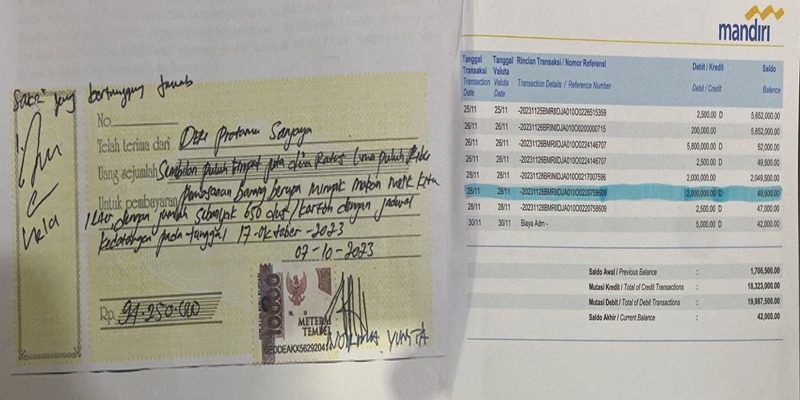 Saksi yang bertanggung jawab
Vela
No.
Telah terima dari Dede Pratama Sanjaya
Uang sejumlah Sembilan puluh empat juta dua Ratus Lima puluh Ribu
Untuk pembayaran Pemesanan barang berupa minyak makan merk kita
1 Liter dengan jumlah sebanyak 650 dus/karton dengan jadwal
kedatangan pada tanggal 17-Oktober-2023
07-10-2023
Rp. 94.250.000
10000
METERAI
TEMPEL
YUNITA
mandiri
Tanggal Transaksi Tanggal Valuta Rincian Transaksi / Nomor Referensi Debit / Kredit Saldo
Transaction Date Value Date Transaction Details / Reference Number Debit / Credit Balance
25/11 25/11 -20231125BMRIIDJA010O0226515359 2,500.00 D 5,652,000.00
26/11 26/11 200,000.00 5,852,000.00
26/11 26/11 5,800,000.00 D 52,000.00
26/11 26/11 2,500.00 D 49,500.00
28/11 28/11 2,000,000.00 2,049,500.00
28/11 28/11 2,000,000.00 D 49,500.00
28/11 28/11 2,500.00 D 47,000.00
30/11 30/11 Biaya Adm - 5,000.00 D 42,000.00
Saldo Awal / Previous Balance : 1,706,500.00
Mutasi Kredit / Total of Credit Transactions : 18,323,000.00
Mutasi Debit / Total of Debit Transactions : 19,987,500.00
Saldo Akhir / Current Balance : 42,000.00